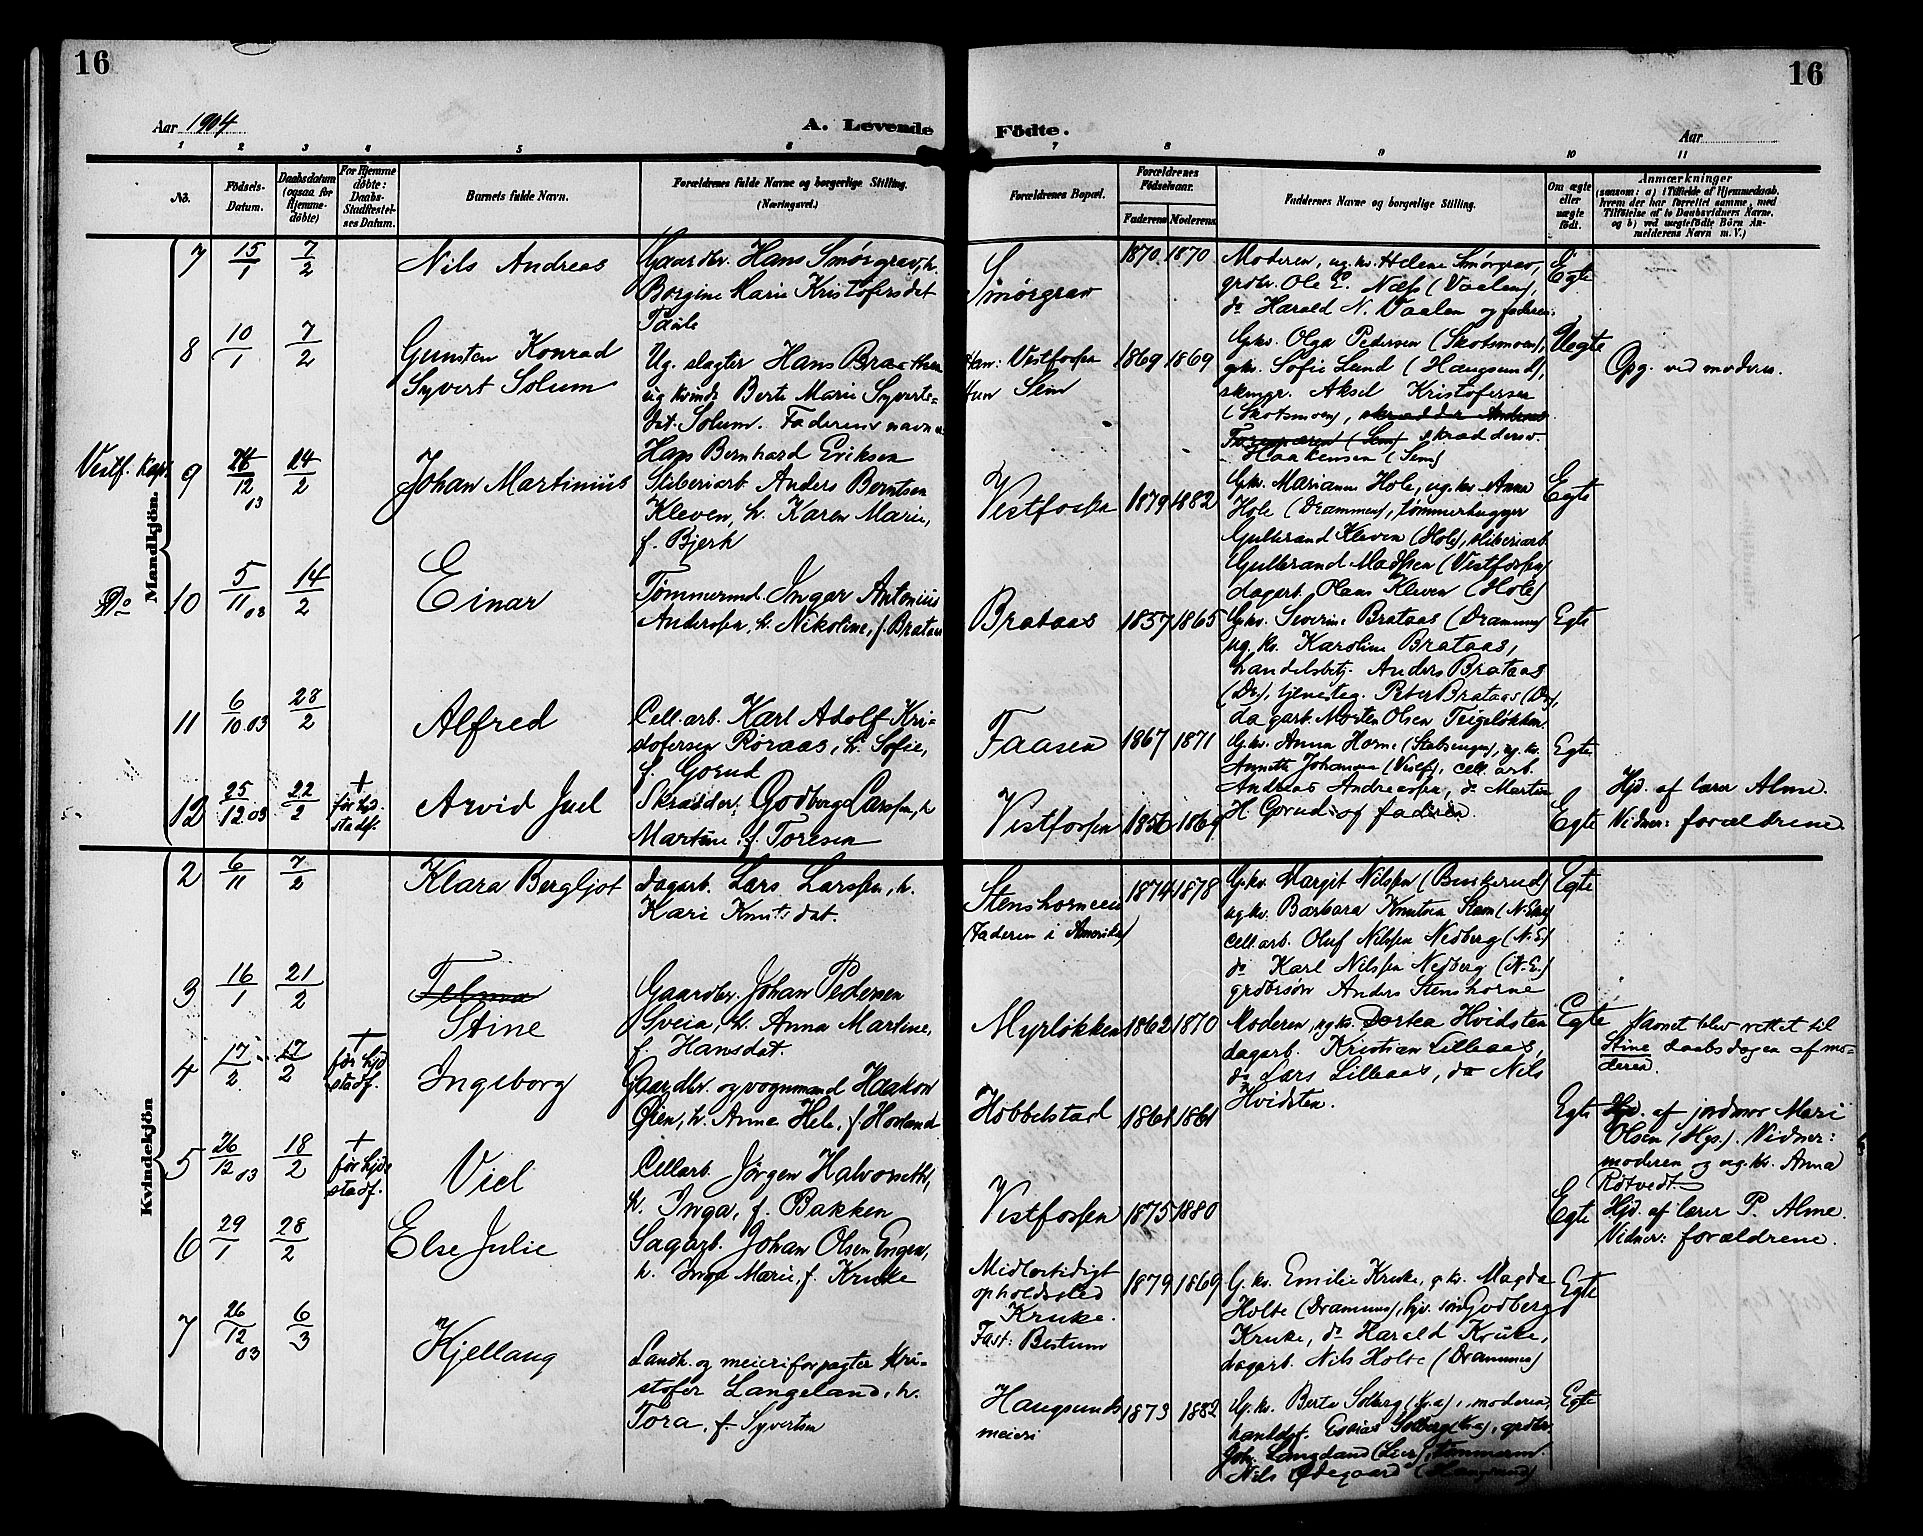 16
16
Aar 1904
A. Levende
Födte.
Aar
1 2 3 4 5 6 7 8 9 10 11
No.
Födsels-
Datum.
Daabsdatum
(ogsaa for
Hjemme-
döbte)
For Hjemme
döbte:
Daabs-
Stadfæstel-
ses Datum.
Barnets fulde Navn.
Forældrenes fulde Navne og borgerlige Stilling.
(Næringsvei.)
Forældrenes Bopæl.
Forældrenes
Födselsaar.
Faderens Moderens
Faddernes Navne og borgerlige Stilling.
Om ægte
eller
uægte
födt.
Anmærkninger
(saasom: a) i Tilfælde af Hjemmedaab,
hvem der har forrettet samme, med
Tilföielse af to Daabsvidners Navne,
og b) ved uægtefödte Börn An-
melderens Navn m. V.)
Mandkjön.
7 15/1 7/2 Nils Andreas
Gaardbr. Hans Smörgrav, h.
Borgine Marie Kristofersdet
Smörgrav 1870 1870
Moderen, ug. kv. Helene Smörgrav,
grdbr. Ole E. Næss (Vaalen),
do Harald N. Vaalen og faderen.
Egte
8 10/1 7/2 Gunsten Konrad
Syvert Solum
Ug. slagter Hans Braathen
ug kvinde Berte Marie Syverts-
dat. Solum. Faderens navn
Hans Bernhard Eriksen
Ham: Vestfossen
Hun Sem
1869 1869
Gkv. Olga Pedersen (Skotsmoen),
gkv. Sofie Lund (Haugsund),
Aksel Kristofersen
(Skotsmoen), skrædder Andreas
(Sem) skrædders.
Haakensen (Sem)
Uegte
Opg. ved moderen.
Vestf. kap. 9 26/12 03 14/2 Johan Martinius
Sliberiarb Anders Berntsen
Kleven, h. Karen Marie,
f. Bjerk
Vestfossen 1879 1882
Gkv. Marianne Hole, ug. kv Anna
Hole (Drammen), tømmerhugger
Gulbrand Kleven (Hole), sliberiarb.
Gulbrand Madssen (Vestfossen)
dagarb. Olaus Kleven (Hole)
Egte
Do 10 5/11 03 14/2 Einar
Tømmermd. Ingar Antonius
Anderssen, h. Nikoline, f. Brataas
Brataas 1857 1865
Gkv. Severine Brataas (Drammen)
ug. kv. Karoline Brataas,
handelsbetj. Anders Brataas
(Dr.), tjenesteg. Peter Brataas (Dr),
dagarb. Morten Olsen Teigeløkken.
Egte
11 6/10 03 28/2 Alfred
Cell.arb. Karl Adolf Kri-
stofersen Røraas, h. Sofie,
f. Gorud
Faasen 1867 1871
Gkv. Anna Horne (Stabsengen), ug. kv.
Annette Johansen (Vestf), cell. arb.
Andreas Andreassen, do Martin
H. Gorud og faderen.
Egte
12 25/12 03 22/2 +
før hjd.
stadf.
Arvid Juel
Skrædder Godberg Larssen, h
Martine f. Toresen
Vestfossen 1856 1869
Egte
Hjd. af lærer Alme.
Vidner: forældrene.
Kvindekjön
2 6/11 7/2 Klara Bergljot
dagarb. Lars Larssen, h.
Kari Knutsdat.
Stenshorneie
(Faderen i Amerika)
1874 1878
Gkv. Margit Nilssen (Buskerud)
ug kv. Barbara Knutsen Stem (N. Eker)
cell.arb. Oluf Nilssen Nedberg (N. E)
do Karl Nilssen Nedberg (N. E.)
grdbrsøn Anders Stenshorne
Egte
3 16/1 21/2 Telma
Stine
Gaardbr. Johan Pedersen
Sveia, h. Anna Martine,
f. Hansdat.
Myrløkken 1862 1870
Moderen, ug. kv. Dortea Hvidsten
dagarb. Kristian Lilleaas,
do Lars Lilleaas, do Nils
Hvidsten.
Egte
Navnet blev rettet til
Stine daabsdagen af mo-
deren.
4 17/2 17/2 +
før hjd
stadf.
Ingeborg
Gaardbr. og vognmand Haakon
Øien, h. Anne Hele, f Horland
Hobbelstad 1861 1861
Egte
Hjd. af jordmor Mari
Olsen (Hgs). Vidner:
moderen og ug. kv. Anna
Rotvedt.
5 26/12 03 18/2 +
før hjd
stadf.
Viel
Cellarb. Jørgen Halvorseth,
h. Inga, f. Bakken
Vestfossen 1875 1880
Egte
Hjd. af lærer P. Alme.
Vidner: forældrene.
6 29/1 28/2 Else Julie
Sagarb. Johan Olsen Engen,
h. Inga Marie, f. Kruke
Midlertidigt
opholdssted
Kruke.
Fast: Bestum
1879 1869
G. kv. Emilie Kruke, g. kv. Magda
Holte (Drammen), Godberg
Kruke, do Harald Kruke,
dagarb. Nils Holte (Drammen)
Egte
7 26/12 03 6/3 Kjellaug
Landh. og meieriforpagter Kri-
stofer Langeland, h.
Tora, f. Syvertsen
Haugsunds
meieri
1873 1882
G. kv. Berte Solberg (Kr.a), moderen,
Solberg (Kr.a), grdbr.
Joh. Langeland (Lier), tømmerm.
Nils Ødegaard (Haugsund)
Egte